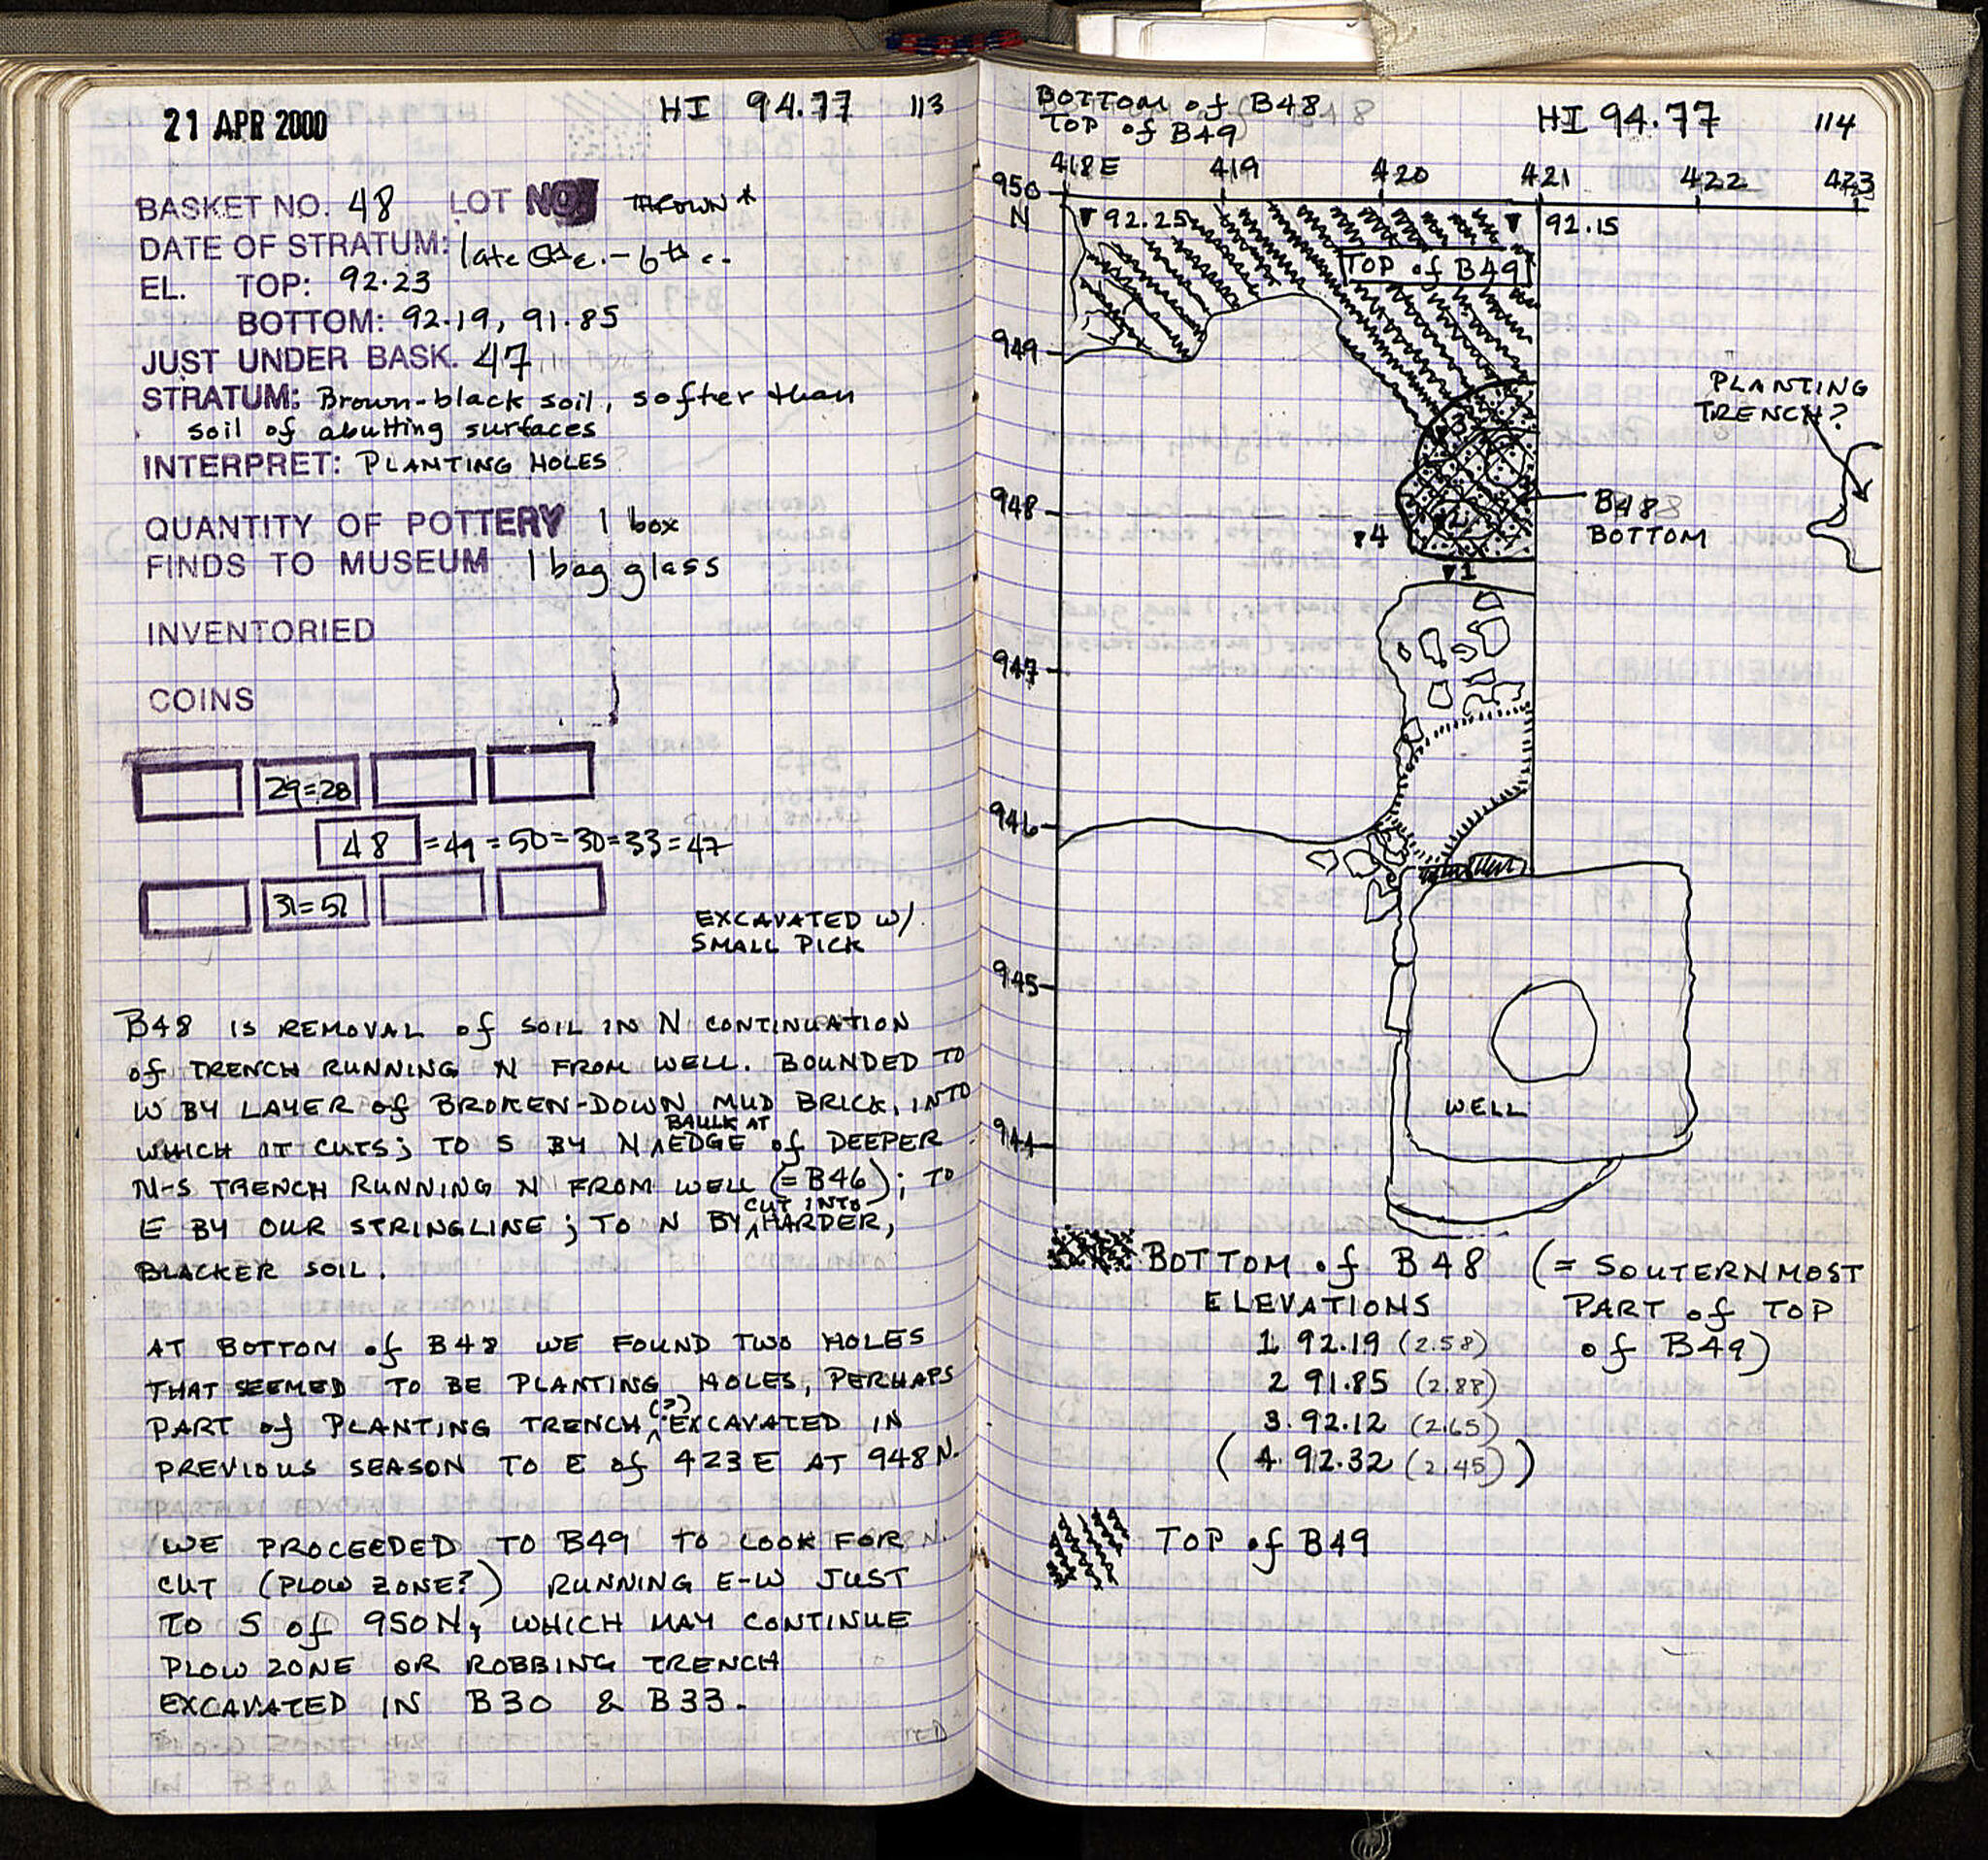 21 APR 2000
HI 94.77 113
BASKET NO. 48 LOT NO THROWN *
DATE OF STRATUM: late c. - 6th c.
EL. TOP: 92.23
BOTTOM: 92.19, 91.85
JUST UNDER BASK. 47
STRATUM: Brown-black soil, softer than
soil of abutting surfaces
INTERPRET: PLANTING HOLES
QUANTITY OF POTTERY 1 box
FINDS TO MUSEUM 1 bag glass
INVENTORIED
COINS
29=28
48 =49=50=30=33=47
31=51
EXCAVATED W/
SMALL PICK
B48 IS REMOVAL of SOIL IN N CONTINUATION
of TRENCH RUNNING N FROM WELL. BOUNDED TO
W BY LAYER of BROKEN-DOWN MUD BRICK, INTO
WHICH IT CUTS; TO S BY N BAULK AT EDGE of DEEPER
N-S TRENCH RUNNING N FROM WELL (=B46); TO
E BY OUR STRINGLINE; TO N BY CUT INTO HARDER,
BLACKER SOIL.
AT BOTTOM of B48 WE FOUND TWO HOLES
THAT SEEMED TO BE PLANTING HOLES, PERHAPS
PART of PLANTING TRENCH (?) EXCAVATED IN
PREVIOUS SEASON TO E of 423E AT 948N.
WE PROCEEDED TO B49 TO LOOK FOR
CUT (PLOW ZONE?) RUNNING E-W JUST
TO S of 950N, WHICH MAY CONTINUE
PLOW ZONE OR ROBBING TRENCH
EXCAVATED IN B30 & B33.
BOTTOM of B48
TOP of B49
HI 94.77 114
418E 419 420 421 422 423
950
N
92.25
92.15
TOP of B49
949
PLANTING
TRENCH?
948
B48
BOTTOM
4
1
2
947
946
945
WELL
944
BOTTOM of B48 (= SOUTERNMOST
ELEVATIONS PART of TOP
1 92.19 (2.58) of B49)
2 91.85 (2.88)
3. 92.12 (2.65)
(4. 92.32 (2.45))
TOP of B49